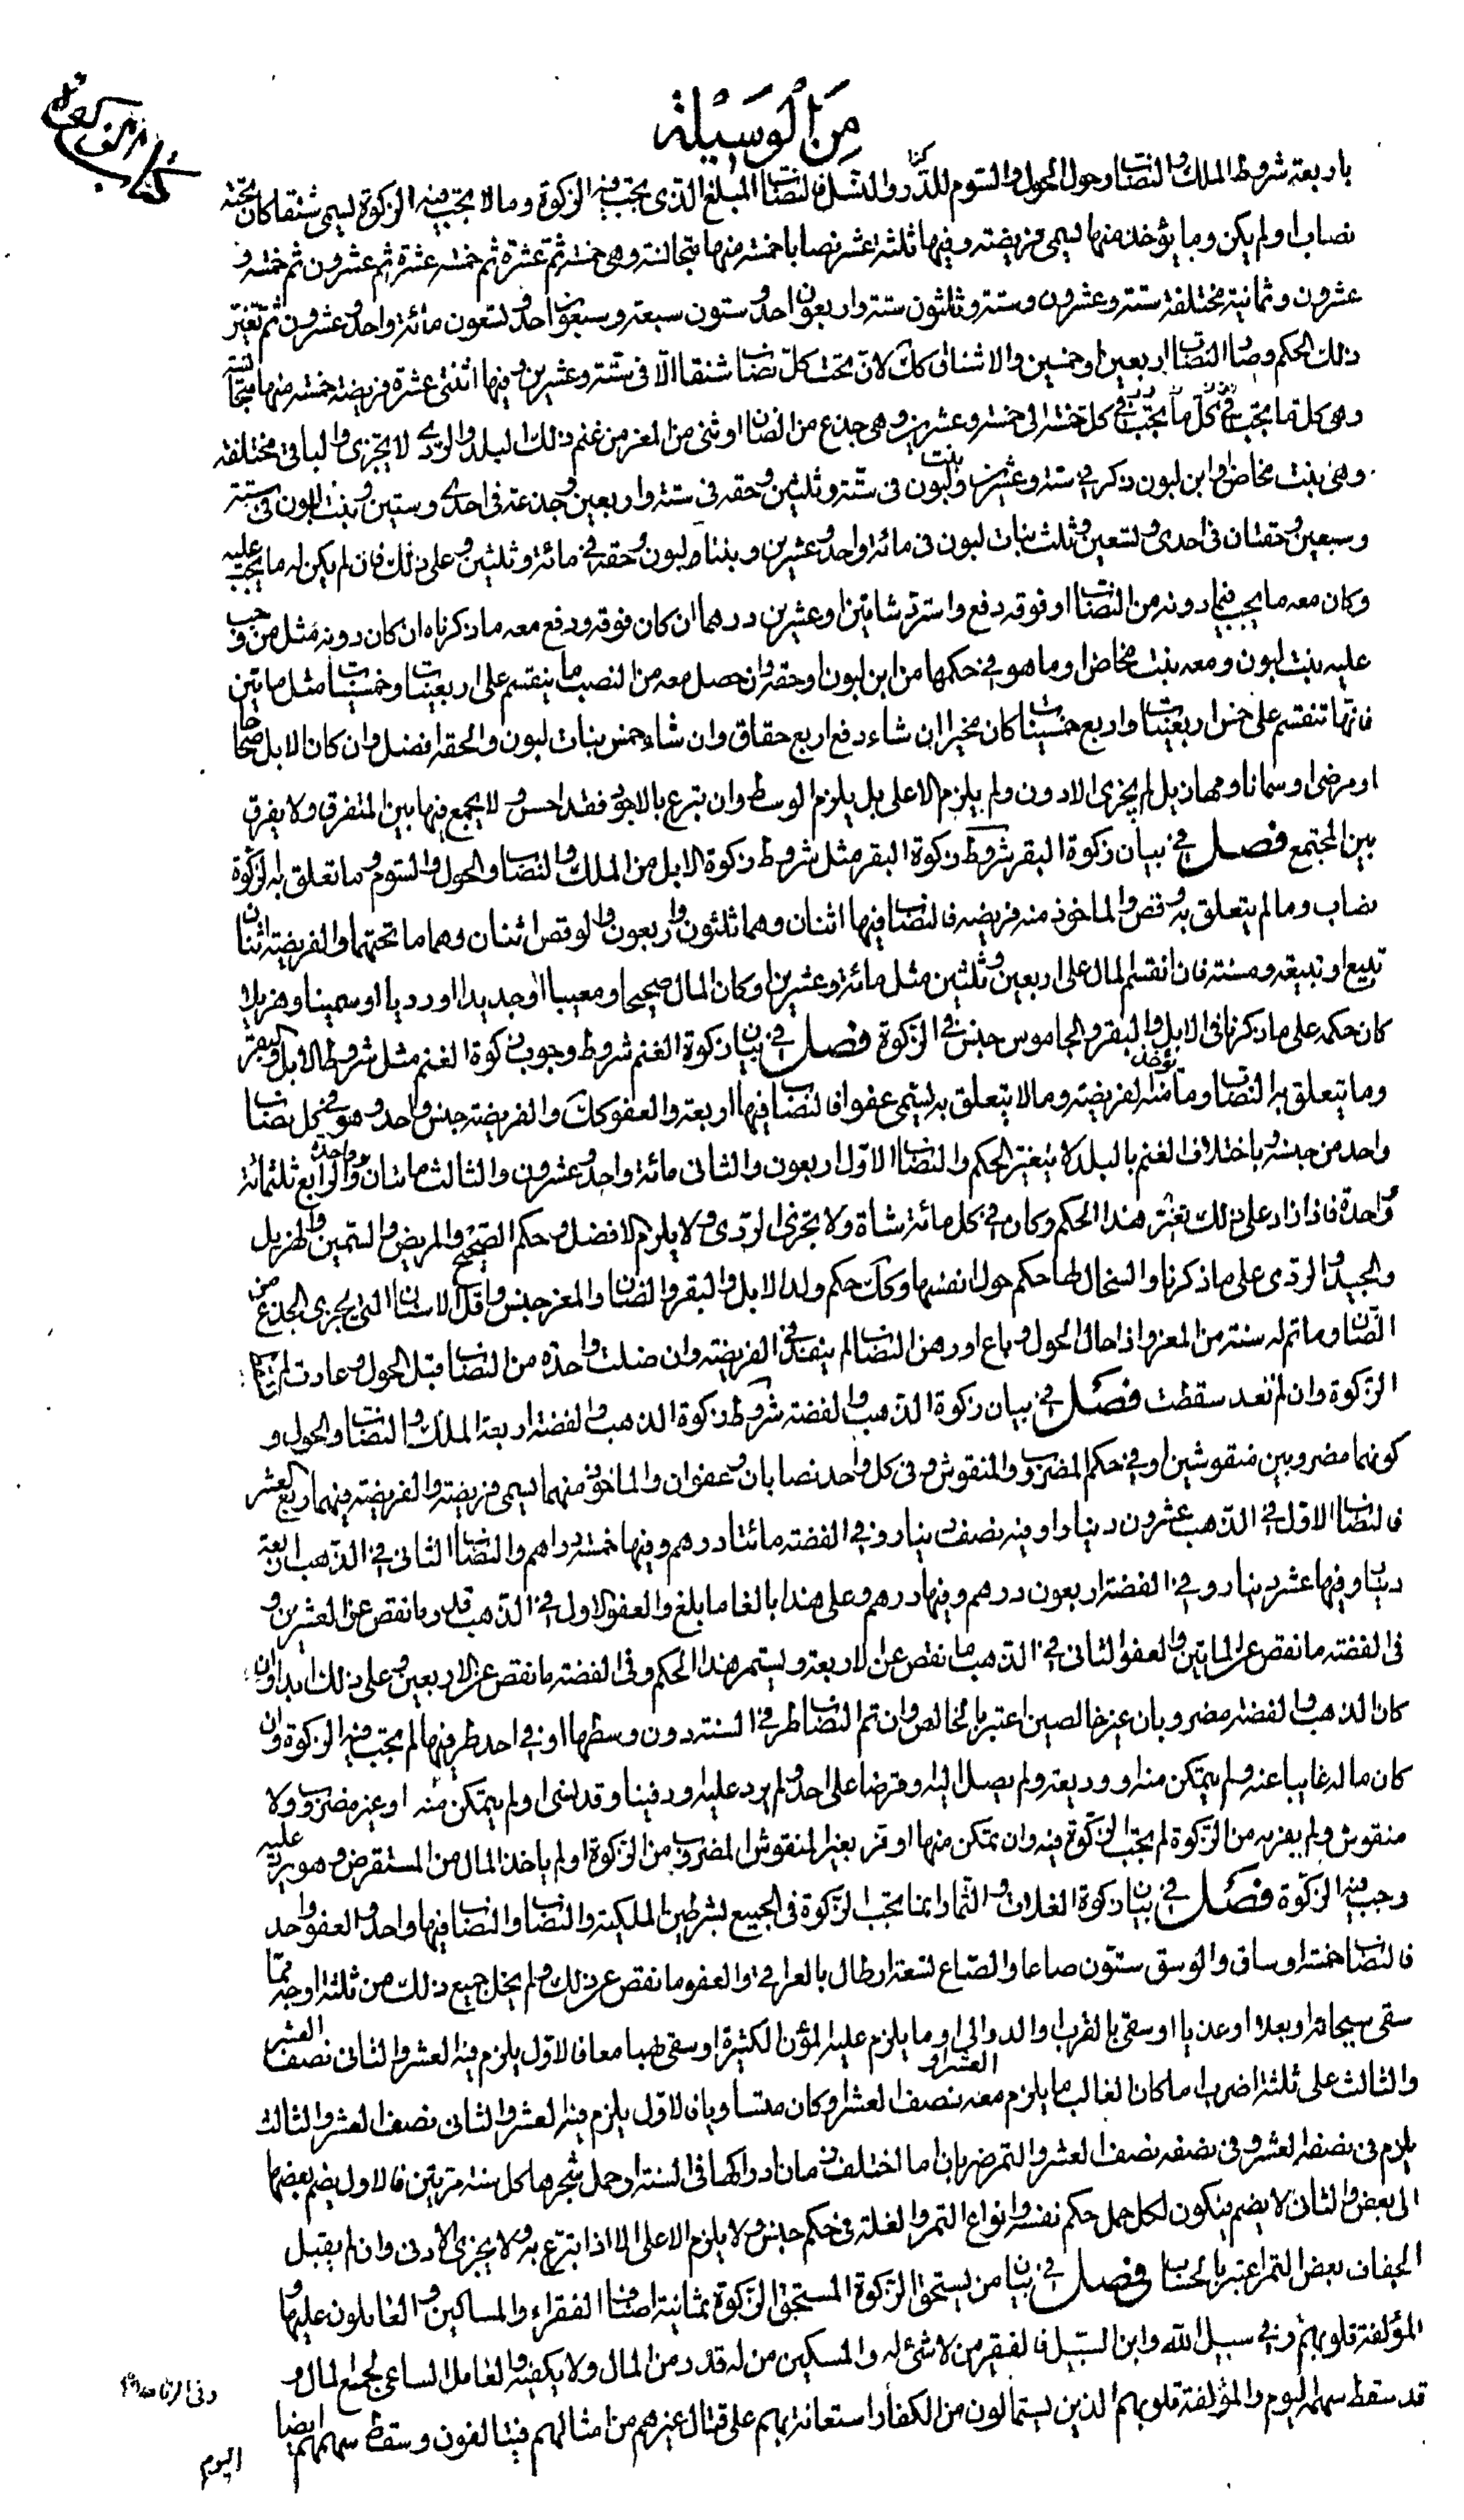 مِنَ الْوَسِيْلَة
باربعة شروط الملك والنصاب وحول الحول والسوم للدر والنسل فالنصاب المبلغ الذي يجب فيه الزكوة وما لا يجب فيه الزكوة يسمى شنقا كان تحته
نصاب او لم يكن وما يؤخذ منها يسمى فريضة وفيها ثلثة عشر نصابا خمسة منها متجانسة وهى خمسة ثم عشرة ثم خمسة عشرة ثم عشرون ثم خمسة و
عشرون وثمانية مختلفة ستة وعشرون وستة وثلثون ستة واربعون احد وستون سبعة وسبعون احد وتسعون مائة واحد وعشرون ثم تغير
ذلك الحكم وصار النصاب اربعين او خمسين والاشناق كك لان تحت كل نصاب شنقا الا فى ستة وعشرين وفيها اثنتى عشرة فريضة خمسة منها متجانسة
وهى كلما يجب فى كل ما يجب فى كل خمسة الى خمسة وعشرين وهى جذع من الضان او ثنى من المعز من غنم ذلك البلد والردى لا يجزى والباقى مختلفة
وهى بنت مخاض او ابن لبون ذكر فى ستة وعشرين وبنت لبون فى ستة وثلثين وحقة فى ستة واربعين وجذعة فى احدى وستين وبنتا لبون فى ستة
وسبعين وحقتان فى احدى وتسعين وثلث بنات لبون فى مائة واحد وعشرين وبنتا لبون وحقة فى مائة وثلثين وعلى ذلك فان لم يكن له ما يجب عليه
وكان معه ما يجب فيما دونه من النصاب او فوقه دفع واسترد شاتين او عشرين درهما ان كان فوقه ودفع معه ما ذكرناه ان كان دونه مثل من وجب
عليه بنت لبون ومعه بنت مخاض او ما هو فى حكمها من ابن لبون او حقة وان حصل معه من النصب ما ينقسم على اربعينات وخمسينات مثل ماتين
فانها تنقسم على خمس اربعينات واربع خمسينات كان مخيرا ان شاء دفع اربع حقاق وان شاء خمس بنات لبون والحقة افضل وان كان الابل صحاحا
او مرضى او سمانا ومهازيل لم يجزى الادون ولم يلزم الاعلى بل يلزم الوسط وان تبرع بالاجود فقد احسن ولا يجمع فيها بين المتفرق ولا يفرق
بين المجتمع فصل فى بيان زكوة البقر شروط زكوة البقر مثل شروط زكوة الابل من الملك والنصاب والحول والسوم وما تعلق به الزكوة
نصاب وما لم يتعلق به وقص والماخوذ منه فريضة فالنصاب فيها اثنان وهما ثلثون واربعون والوقص اثنان وهما ما تحتهما والفريضة اثنان
تبيع او تبيعة ومسنة فان انقسم المال على اربعين وثلثين مثل مائة وعشرين او كان المال صحيحا ومعيبا او جديدا او رديا او سمينا وهزيلا
كان حكمه على ما ذكرنا فى الابل والبقر والجاموس جنس فى الزكوة فصل فى بيان زكوة الغنم شروط وجوب زكوة الغنم مثل شروط الابل والبقر
وما يتعلق به النصاب وما يؤخذ منه الفريضة وما لا يتعلق به يسمى عفوا فالنصاب فيها اربعة والعفو كك والفريضة جنس واحد وهو فى كل نصاب
واحد من جنسه وباختلاف الغنم بالبلد لا يتغير الحكم والنصاب الاول اربعون والثانى مائة واحد وعشرون والثالث ماتان وواحدة والرابع ثلثمائة
وواحدة فاذا زاد على ذلك تغير هذا الحكم وكان فى كل مائة شاة ولا يجزى الردى ولا يلزم الافضل وحكم الصحيح والمريض والسمين والهزيل
والجيد والردى على ما ذكرنا والسخال لها حكم حول انفسها وكك حكم ولد الابل والبقر والضان والمعز جنس واقل الاسنان التى يجزى الجذع من
الضان وما تم له سنة من المعز واذا حال الحول وباع او رهن النصاب لم ينفذ فى الفريضة وان ضلت واحدة من النصاب قبل الحول وعادت لزمت
الزكوة وان لم تعد سقطت فصل فى بيان زكوة الذهب والفضة شروط زكوة الذهب والفضة اربعة الملك والنصاب والحول و
كونهما مضروبين منقوشين او فى حكم المضروب والمنقوش وفى كل واحد نصابان وعفوان والماخوذ منهما يسمى فريضة والفريضة فيهما ربع العشر
فالنصاب الاول فى الذهب عشرون دينارا وفيه نصف دينار وفى الفضة مائتا درهم وفيها خمسة دراهم والنصاب الثانى فى الذهب اربعة
دنانير وفيها عشر دينار وفى الفضة اربعون درهم وفيها درهم وعلى هذا بالغا ما بلغ والعفو الاول فى الذهب قدر ما نقص عن العشرين و
فى الفضة ما نقص عن الماتين والعفو الثانى فى الذهب ما نقص عن الاربعة ويستمر هذا الحكم وفى الفضة ما نقص عن الاربعين وعلى ذلك ابدا وان
كان الذهب والفضة مضروبان غير خالصين اعتبر بالخالص وان تم النصاب طرفى السنة دون وسطها او فى احد طرفيها لم يجب فيه الزكوة وان
كان ماله غايبا عنه ولم يتمكن منه او وديعة ولم يصل اليه وقرضا على احد ولم يرد عليه ودفينا وقد نسى او لم يتمكن منه او غير مضروب ولا
منقوش ولم يفر به من الزكوة لم يجب الزكوة فيه وان تمكن منها او فر بغير المنقوش المضروب من الزكوة او لم ياخذ المال من المستقرض وهو يرد عليه
وجب فيه الزكوة فصل فى بيان زكوة الغلات والثمار انما يجب الزكوة فى الجميع بشرطين الملكية والنصاب والنصاب فيها واحد والعفو واحد
فالنصاب خمسة اوساق والوسق ستون صاعا والصاع تسعة ارطال بالعراقى والعفو ما نقص عن ذلك ولم يخل جميع ذلك من ثلثة اوجه مما
سقى سيحا او بعلا او عذيا او سقى بالقرب او الدوالى او ما يلزم عليه المؤن الكثيرة او سقى بهما معا فالاول يلزم فيه العشر والثانى نصف العشر
والثالث على ثلثة اضرب اما كان الغالب ما يلزم معه العشر او نصف العشر او كان متساويا فالاول يلزم فيه العشر والثانى نصف العشر والثالث
يلزم فى نصفه العشر وفى نصفه نصف العشر والتمر ضربان اما اختلف زمان ادراكها فى السنة او حمل شجرها كل سنة مرتين فالاول يضم بعضها
الى بعض والثانى لا يضم فيكون لكل حمل حكم نفسه وانواع التمر والغلة فى حكم جنس ولا يلزم الاعلى الا اذا تبرع به ولا يجزى الادنى وان لم يقبل
الجفاف بعض التمر اعتبر بالحساب فصل فى بيان من يستحق الزكوة المستحق الزكوة ثمانية اصناف الفقراء والمساكين والعاملون عليها و
المؤلفة قلوبهم وفى سبيل الله وابن السبيل فالفقير من لا شئ له والمسكين من له قدر من المال ولا يكفيه والعامل الساعى لجمع المال و
قد سقط سهمه اليوم والمؤلفة قلوبهم الذين يستمالون من الكفار استعانة بهم على قتال غيرهم من امثالهم فيتالفون وسقط سهمهم ايضا
اليوم